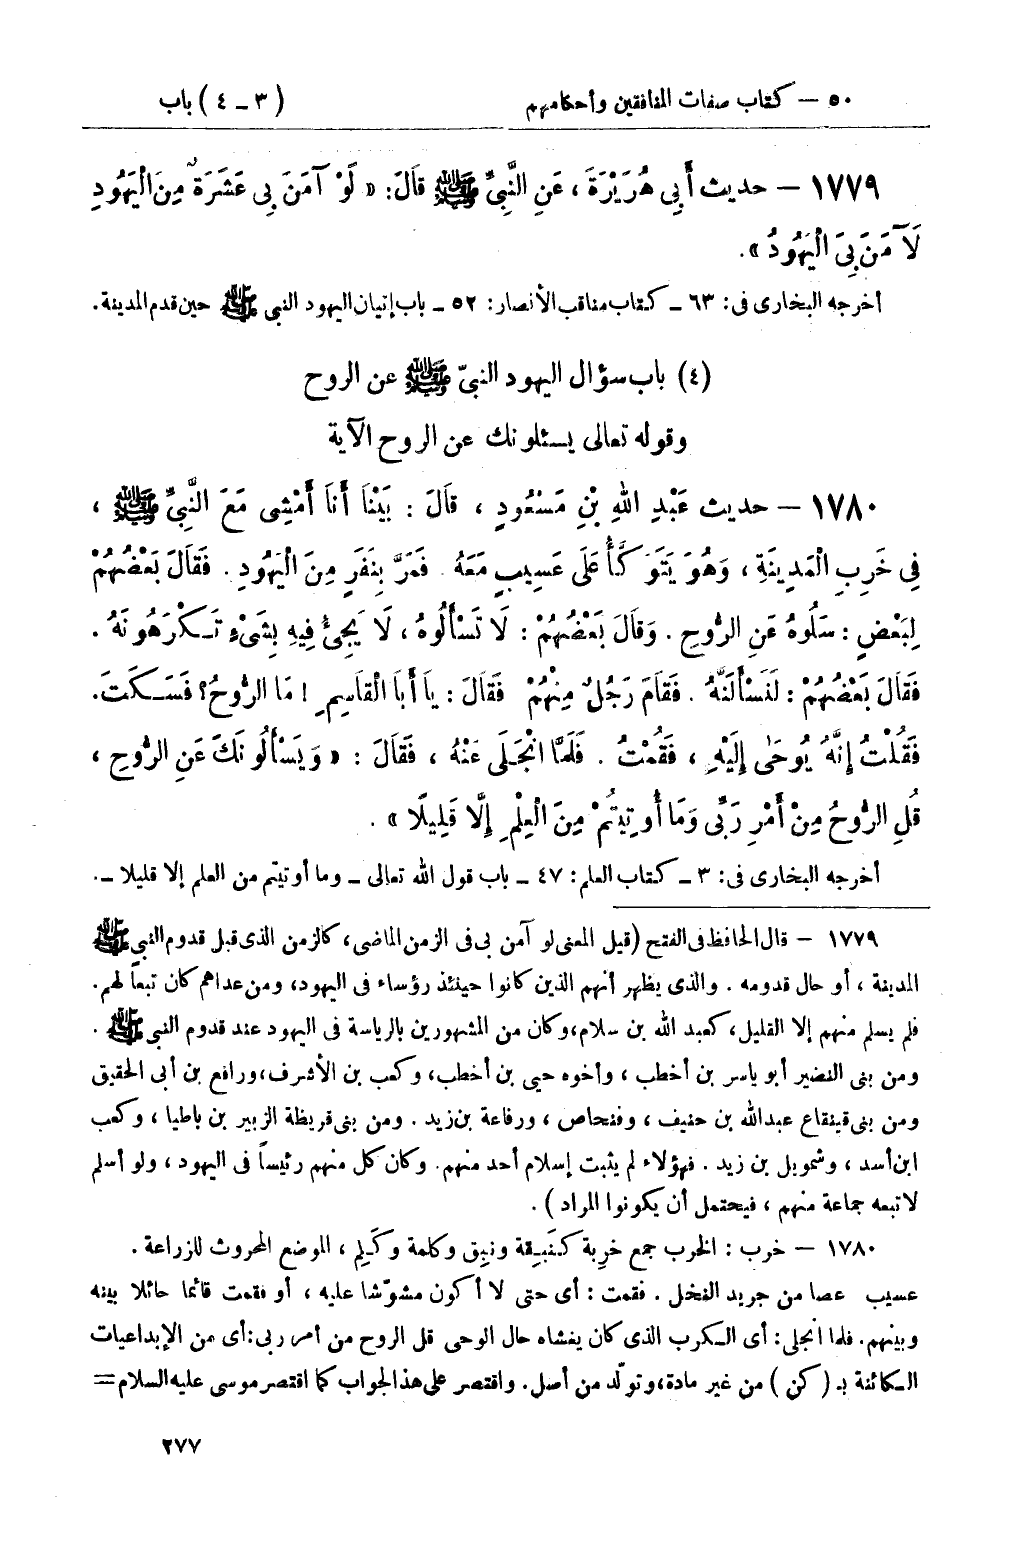 ٥٠ – كتاب صفات المنافقين وأحكامهم (٣ – ٤) باب
١٧٧٩ – حديث أَبِي هُرَيْرَةَ ، عَنِ النَّبِيِّ ﷺ قَالَ: « لَوْ آمَنَ بِي عَشَرَةٌ مِنَ الْيَهُودِ
لَآمَنَ بِيَ الْيَهُودُ » .
أخرجه البخارى فى: ٦٣ – كتاب مناقب الأنصار: ٥٢ – باب إتيان اليهود النبى ﷺ حين قدم المدينة.
(٤) باب سؤال اليهود النبىّ ﷺ عن الروح
وقوله تعالى يسئلونك عن الروح الآية
١٧٨٠ – حديث عَبْدِ اللهِ بْنِ مَسْعُودٍ ، قَالَ : بَيْنَا أَنَا أَمْشِى مَعَ النَّبِيِّ ﷺ ،
فِي خَرِبِ الْمَدِينَةِ ، وَهُوَ يَتَوَكَّأُ عَلَى عَسِيبٍ مَعَهُ . فَمَرَّ بِنَفَرٍ مِنَ الْيَهُودِ . فَقَالَ بَعْضُهُمْ
لِبَعْضٍ : سَلُوهُ عَنِ الرُّوحِ . وَقَالَ بَعْضُهُمْ : لَا تَسْأَلُوهُ ، لَا يَجِئُ فِيهِ بِشَىْءٍ تَكْرَهُونَهُ .
فَقَالَ بَعْضُهُمْ : لَنَسْأَلَنَّهُ . فَقَامَ رَجُلٌ مِنْهُمْ فَقَالَ : يَا أَبَا الْقَاسِمِ ! مَا الرُّوحُ؟ فَسَكَتَ.
فَقُلْتُ إِنَّهُ يُوحَى إِلَيْهِ ، فَقُمْتُ . فَلَمَّا انْجَلَى عَنْهُ ، فَقَالَ : « وَيَسْأَلُونَكَ عَنِ الرُّوحِ ،
قُلِ الرُّوحُ مِنْ أَمْرِ رَبِّى وَمَا أُوتِيتُمْ مِنَ الْعِلْمِ إِلَّا قَلِيلًا » .
أخرجه البخارى فى: ٣ – كتاب العلم: ٤٧ – باب قول الله تعالى – وما أوتيتم من العلم إلا قليلا –.
١٧٧٩ – قال الحافظ فى الفتح (قيل المعنى لو آمن بى فى الزمن الماضى، كالزمن الذى قبل قدوم النبى ﷺ
المدينة ، أو حال قدومه . والذى يظهر أنهم الذين كانوا حينئذ رؤساء فى اليهود، ومن عداهم كان تبعاً لهم.
فلم يسلم منهم إلا القليل، كعبد الله بن سلام، وكان من المشهورين بالرياسة فى اليهود عند قدوم النبى ﷺ .
ومن بنى النضير أبو ياسر بن أخطب ، وأخوه حيى بن أخطب، وكعب بن الأشرف، ورافع بن أبى الحقيق
ومن بنى قينقاع عبدالله بن حنيف ، وفنحاص ، ورفاعة بن زيد . ومن بنى قريظة الزبير بن باطيا ، وكعب
ابن أسد ، وشمويل بن زيد . فهؤلاء لم يثبت إسلام أحد منهم. وكان كل منهم رئيساً فى اليهود ، ولو أسلم
لاتبعه جماعة منهم ، فيحتمل أن يكونوا المراد ) .
١٧٨٠ – خرب : الخرب جمع خرِبة كَنَبِقة ونبِق وكلمة وكَلِم ، الموضع المحروث للزراعة .
عسيب عصا من جريد النخل . فقمت : أى حتى لا أكون مشوّشا عليه ، أو فقمت قائما حائلا بينه
وبينهم. فلما انجلى: أى الكرب الذى كان يغشاه حال الوحى قل الروح من أمر ربى: أى من الإبداعيات
الكائنة بـ ( كن ) من غير مادة، وتولّد من أصل. واقتصر على هذا الجواب كما اقتصر موسى عليه السلام =
٢٧٧